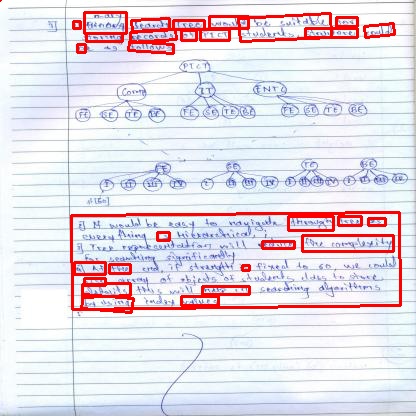 3]
Binary Search Tree would be suitable for
storing records of PICT students, structure could
be as follows
PICT
Comp IT ENTC
FE SE TE BE FE SE TE BE FE SE TE BE
FE SE TE BE
I II III IV I II III IV I II III IV I II III IV
i] It would be easy to navigate through tree as
everything is hierarchical,
ii] Tree representation will reduce time complexity
for searching significantly
At the end, if strength is fixed to 60, we could
array of objects of students class to store
details this will make searching algorithms
by using index values